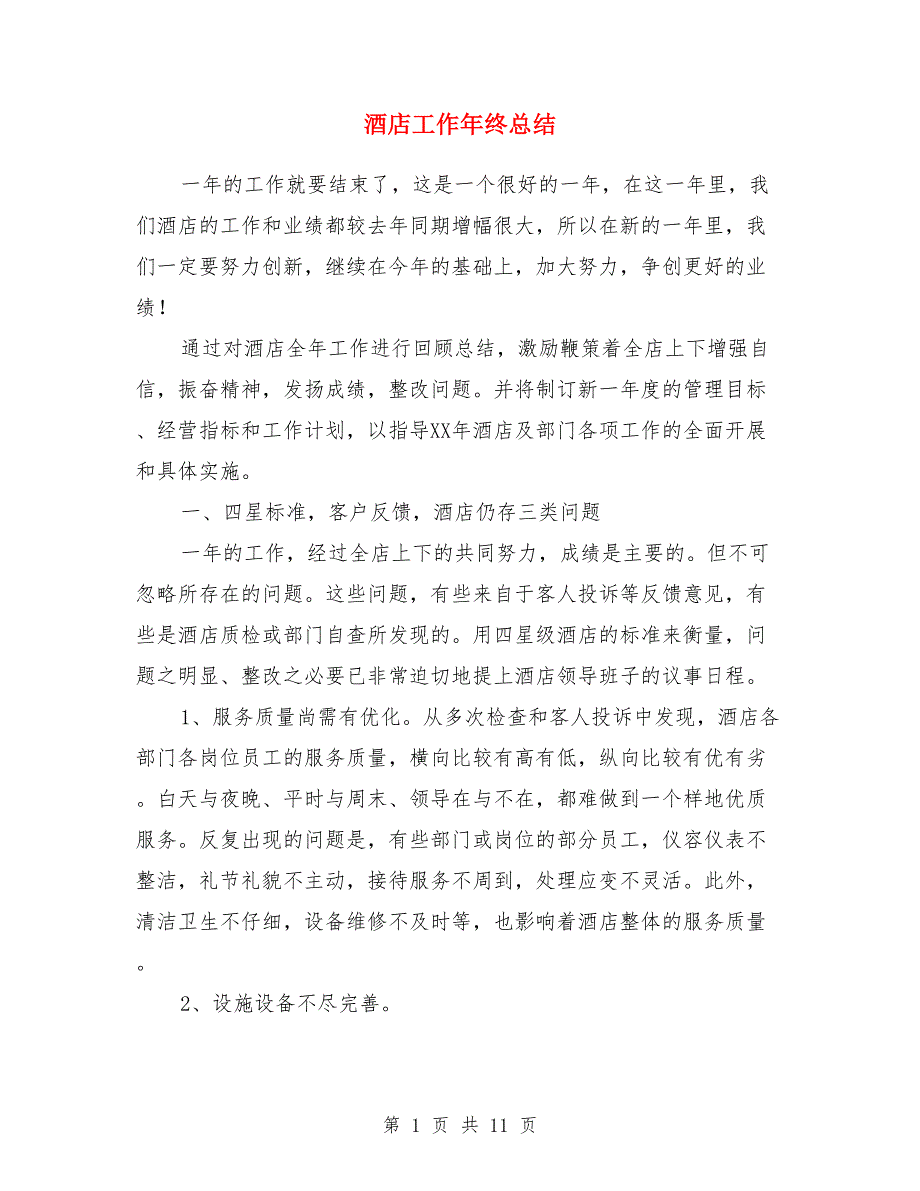 酒店工作年终总结
一年的工作就要结束了，这是一个很好的一年，在这一年里，我
们酒店的工作和业绩都较去年同期增幅很大，所以在新的一年里，我
们一定要努力创新，继续在今年的基础上，加大努力，争创更好的业
绩！
通过对酒店全年工作进行回顾总结，激励鞭策着全店上下增强自
信，振奋精神，发扬成绩，整改问题。并将制订新一年度的管理目标
、经营指标和工作计划，以指导XX年酒店及部门各项工作的全面开展
和具体实施。
一、四星标准，客户反馈，酒店仍存三类问题
一年的工作，经过全店上下的共同努力，成绩是主要的。但不可
忽略所存在的问题。这些问题，有些来自于客人投诉等反馈意见，有
些是酒店质检或部门自查所发现的。用四星级酒店的标准来衡量，问
题之明显、整改之必要已非常迫切地提上酒店领导班子的议事日程。
1、服务质量尚需有优化。从多次检查和客人投诉中发现，酒店各
部门各岗位员工的服务质量，横向比较有高有低，纵向比较有优有劣
。白天与夜晚、平时与周末、领导在与不在，都难做到一个样地优质
服务。反复出现的问题是，有些部门或岗位的部分员工，仪容仪表不
整洁，礼节礼貌不主动，接待服务不周到，处理应变不灵活。此外，
清洁卫生不仔细，设备维修不及时等，也影响着酒店整体的服务质量
。
2、设施设备不尽完善。
第 1 页 共 11 页